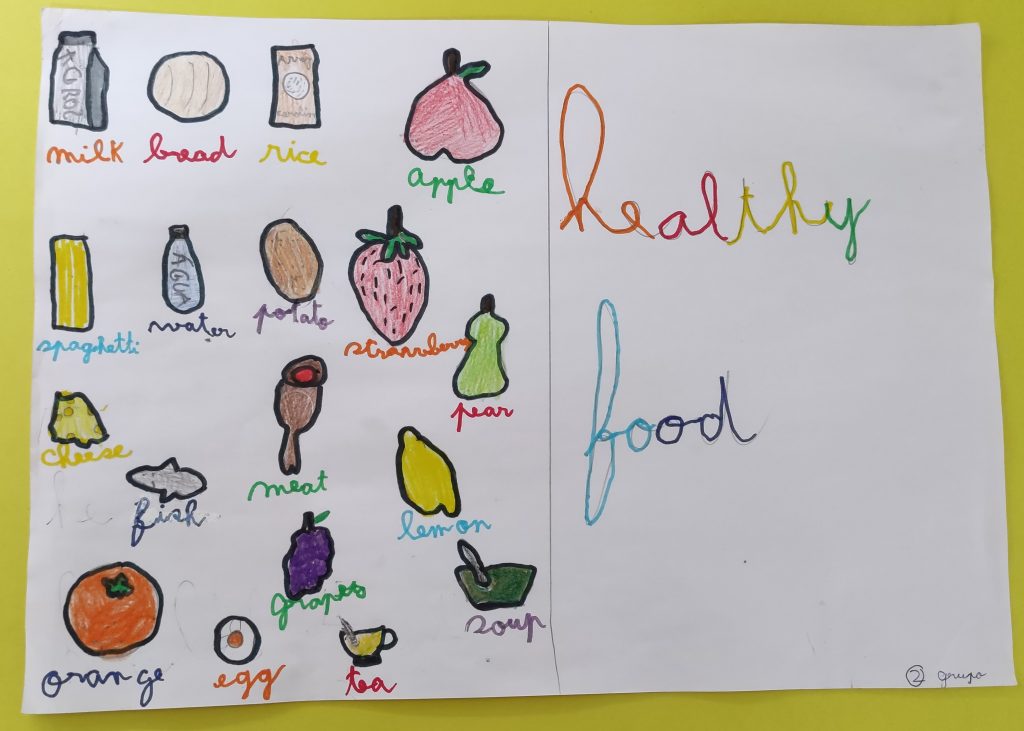 milk bread rice
apple
healthy
AGUA
spaghetti water potato
strawberry
pear
food
cheese
meat
fish
lemon
grapes
soup
orange egg tea
2 grupo